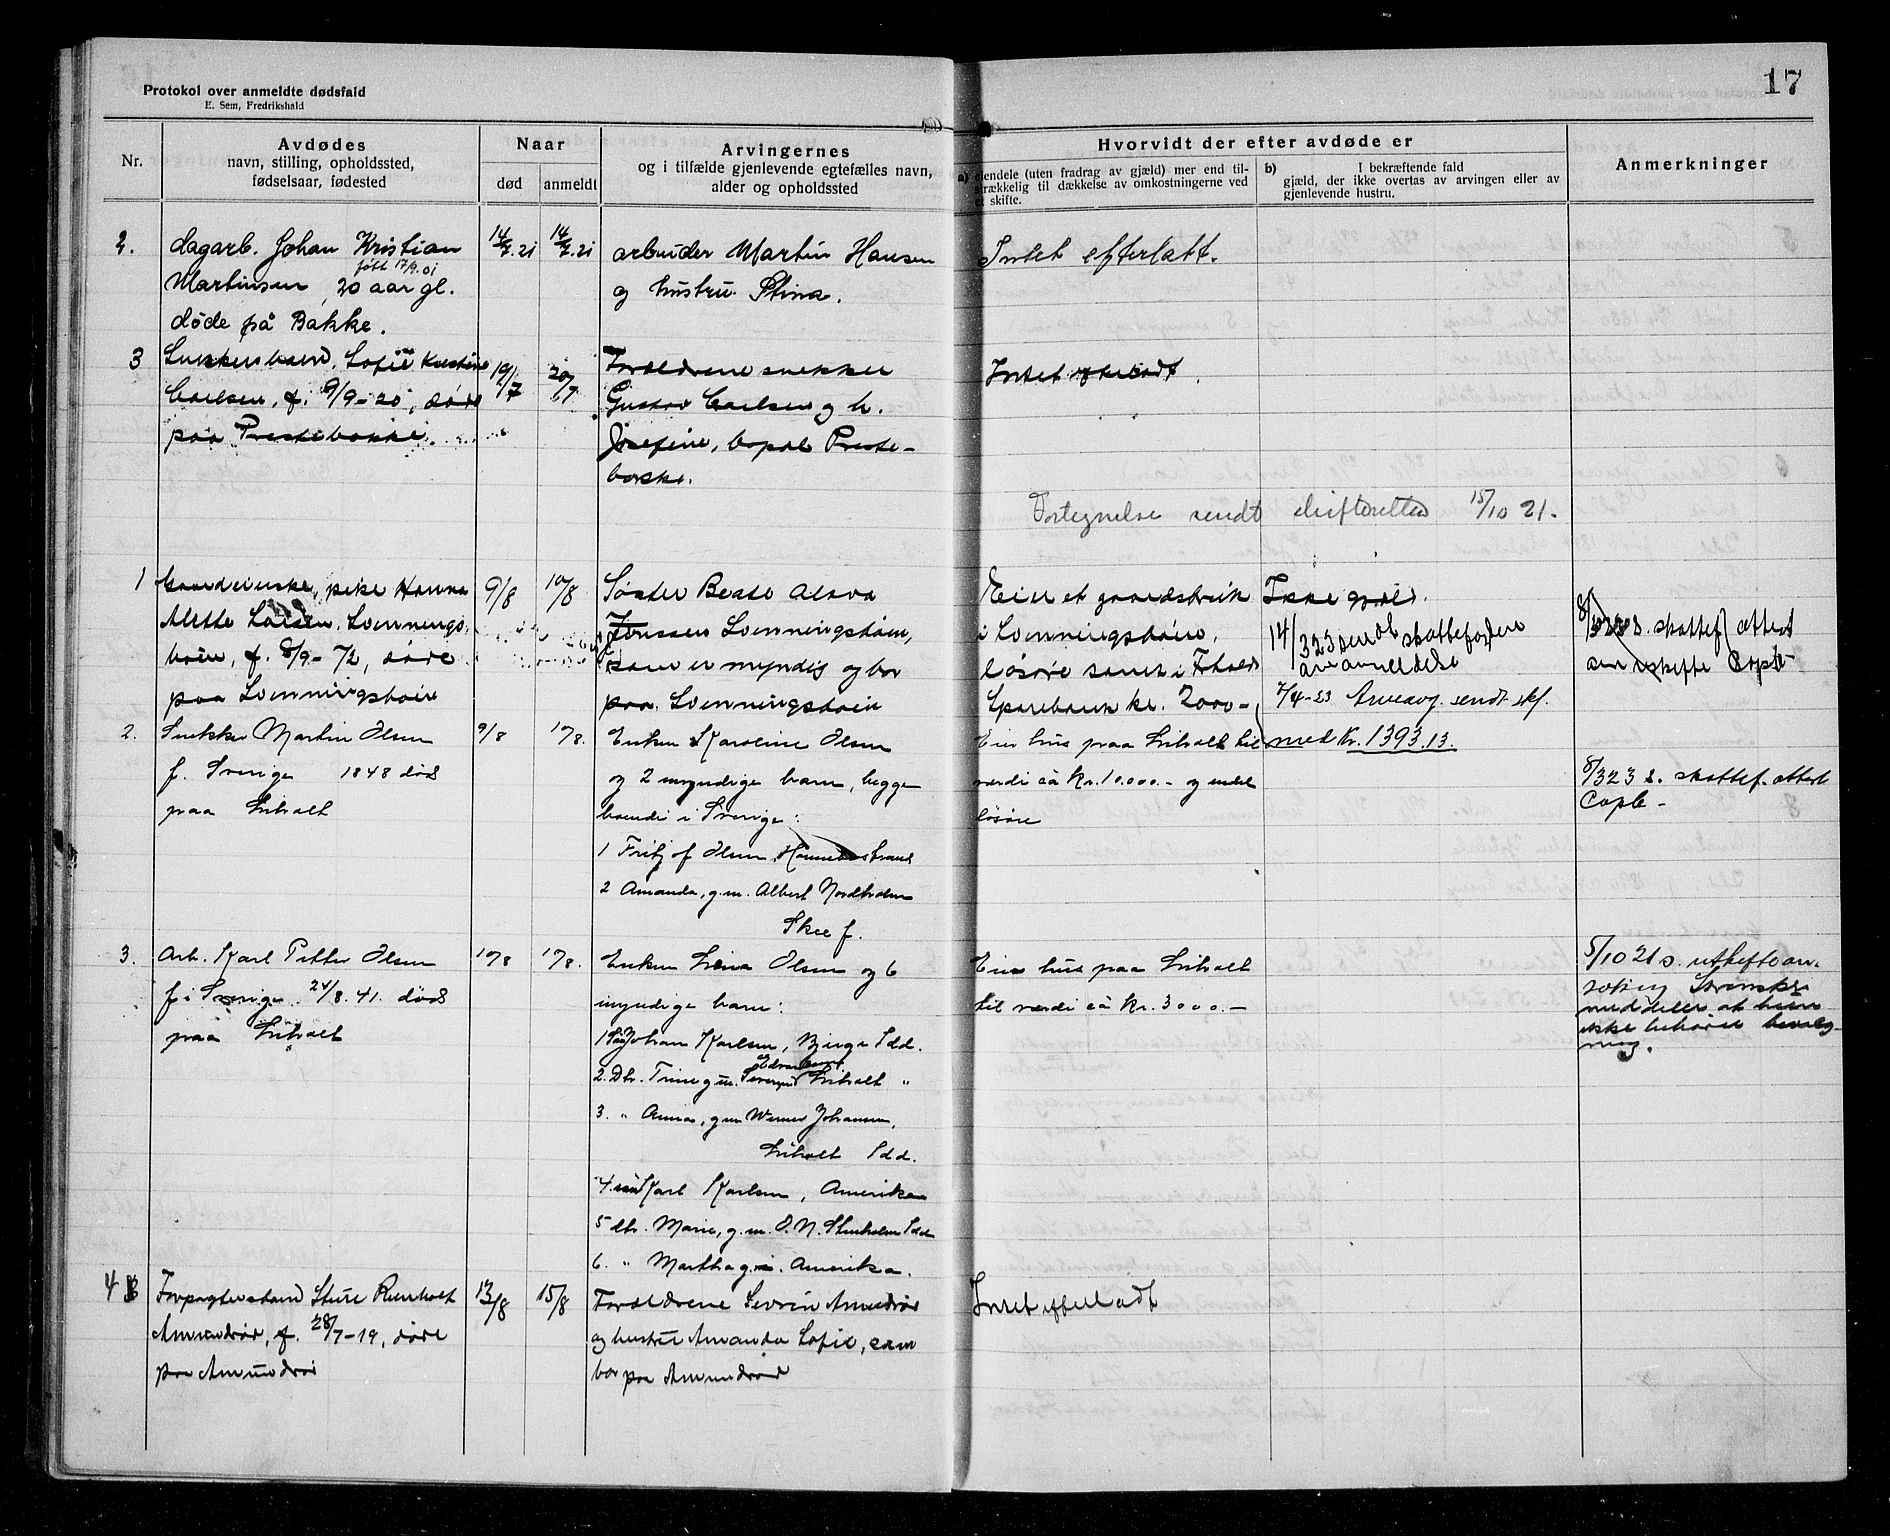 17
Protokol over anmeldte dødsfald
E. Sem, Fredrikshald
Nr.
Avdødes
navn, stilling, opholdssted,
fødselsaar, fødested
Naar
død
anmeldt
Arvingernes
og i tilfælde gjenlevende egtefælles navn,
alder og opholdssted
Hvorvidt der efter avdøde er
a) eiendele (uten fradrag av gjæld) mer end til-
strækkelig til dækkelse av omkostningerne ved
et skifte.
b) I bekræftende fald
gjæld, der ikke overtas av arvingen eller av
gjenlevende hustru.
Anmerkninger
2.
dagarb. Johan Kristian
født 17/9.01
Martinsen, 20 aar gl.
døde på Bakke.
14/7.21
14/7.21
arbeider Martin Hansen
og hustru Stina.
Intet efterlatt.
3
Snekkerbarn. Sofie Kristine
Carlsen, f. 9/9-20, døde
paa Prestebakke.
19/7
20/7
Forældrene snekker
Gustav Carlsen og h.
Josefine, bopæl Preste-
bakke.
Intet efterladt.
Fortegnelse sendt skifteretten 15/10 21.
1
pike Hanna
Alette Larsen. Svennings-
høien, f. 8/9-72, døde
paa Svenningshøien
9/8
10/8
Søster Beate
Svenningshøien,
som er myndig og bor
paa Svenningshøien
Eier et gaardsbruk
i Svenningshøien,
løsøre samt i Fhalds
Sparebank kr. 2000-
Ikke gjæld.
14/3 23 sendt skattefogden
anmeldelse
7/4-23 Arveavg. sendt skf.
med Kr. 1393.13.
8/3 23 s. skattef. attest
Copb-
2.
Snekker Martin Olsen
f. Sverige 1848 død
paa Liholt
9/8
17/8.
Enken Karoline Olsen
og 2 myndige barn, begge
boende i Sverige:
1 Fritjof Olsen, Hannebostrand
2 Amanda, g.m. Albert Nordholm
Skee f.
Eier hus paa Liholt til
værdi ca kr. 10.000.- og endel
løsøre
8/3 23 s. skattef. attest
Copb-
3.
Arb. Karl Petter Olsen
f. i Sverige 24/8.41. død
paa Liholt
10/8
17/8.
Enken Lena Olsen og 6
myndige barn:
1 Søn Johan Karlsen, Berge Idd.
2. Dtr. Trine g.m. Liholt "
3. " Anna, g.m Werner Johansen,
Liholt Idd.
4. søn Karl Karlsen, Amerika
5 dtr. Marie, g.m. O.N. Stenholm Idd
6. " Martha g. i Amerika.
Eier hus paa Liholt
til værdi ca kr. 3000.-
5/10 21 s.
meddeler at
ikke behøver bevilg-
ning.
4
Forpagterbarn Sture Reinholt
Amundrød, f. 28/7-19, døde
paa Amundrød
13/8
15/8
Forældrene Sevrin Amundrød
og hustru Amanda Sofie, som
bor paa Amundrød
Intet efterladt